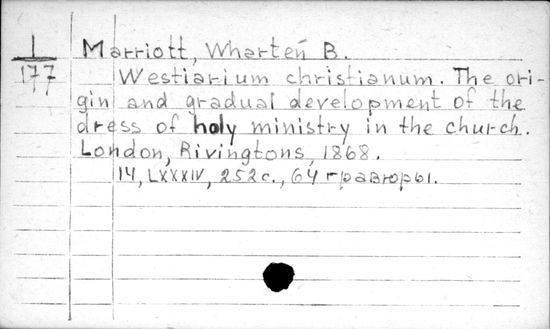 I
177
Marriott, Wharten B.
Westiarium christianum. The ori-
gin and gradual development of the
dress of holy ministry in the church.
London, Rivingtons, 1868.
14, LXXXIV, 252 с., 64 гравюры.